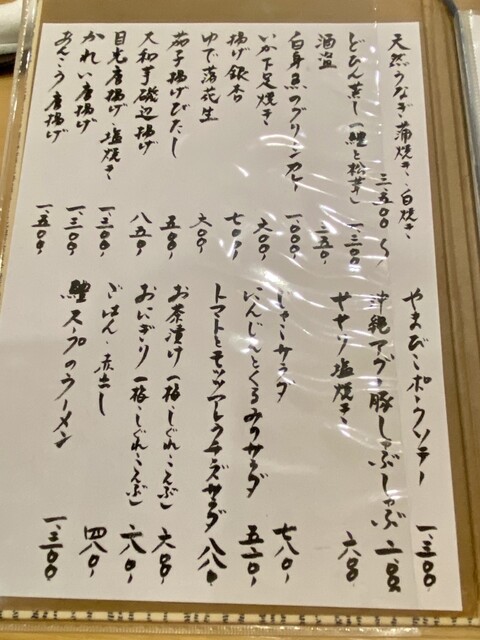 天然うなぎ 蒲焼き・白焼き 三、五〇〇〜
どびん蒸し（鱧と松茸） 一、三〇〇
酒盗 三五〇
白身魚のグリーンカレー 一、〇〇〇
いか下足焼き 六〇〇
揚げ銀杏 七〇〇
ゆで落花生 六〇〇
茄子揚げびたし 五〇〇
大和芋磯辺揚げ 八五〇
目光唐揚げ・塩焼き 一、三〇〇
かれい唐揚げ 一、三〇〇
あんこう唐揚げ 一、五〇〇
やまびこポークソテー 一、三〇〇
沖縄アグー豚しゃぶしゃぶ
ヤヤリ塩焼き 六〇〇
じゃこサラダ 七八〇
にんじんとくるみのサラダ 五五〇
トマトとモッツアレラチーズサラダ 八八〇
お茶漬け（梅・しぐれ・こんぶ） 六〇〇
おにぎり（梅・しぐれ・こんぶ） 二六〇
ごはん・赤出し 四八〇
鱧スープのラーメン 一、三〇〇